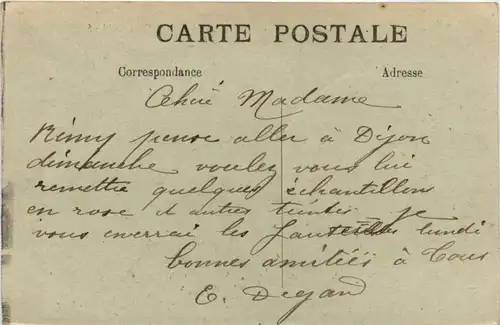 CARTE POSTALE
Correspondance Adresse
Chère Madame
Rémy pense aller à Dijon
dimanche voulez vous lui
remettre quelques échantillons
en rose et autres teintes je
vous enverrai les lundi
bonnes amitiés à tous
E. Degand